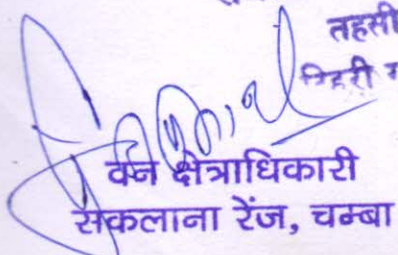 तहसी
टिहरी ग
वन क्षेत्राधिकारी
सकलाना रेंज, चम्बा